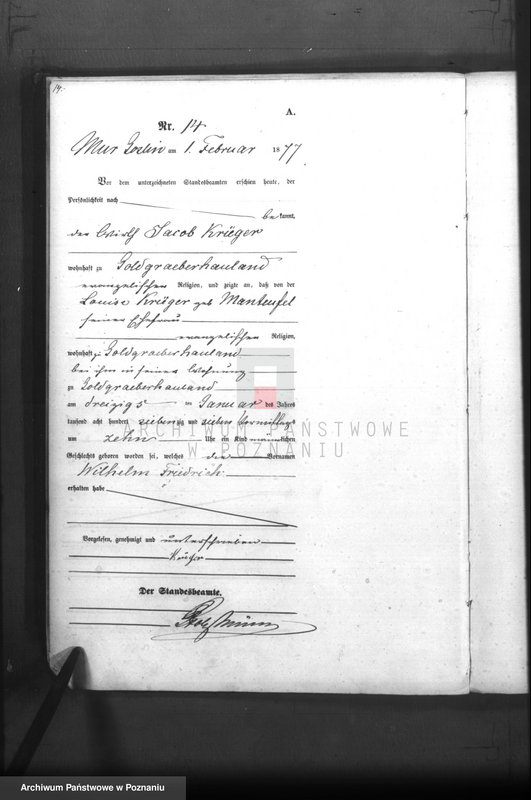 14.
A.
Nr. 14
Mur Goslin am 1. Februar 1877
Vor dem unterzeichneten Standesbeamten erschien heute, der
Persönlichkeit nach
bekannt,
der Wirth Jacob Krüger
wohnhaft zu Goldgraeberhauland
evangelischen Religion, und zeigte an, daß von der
Louise Krüger geb Manteufel
seiner Ehefrau
evangelischen Religion,
wohnhaft zu Goldgraeberhauland
bei ihm in seiner Wohnung
zu Goldgraeberhauland
am dreizigs Januar des Jahres
tausend acht hundert siebenzig und sieben Vormittags
um zehn Uhr ein Kind männlichen
Geschlechts geboren worden sei, welches den Vornamen
Wilhelm Friedrich
erhalten habe
Vorgelesen, genehmigt und unterschrieben
Krüger
Der Standesbeamte.
ARCHIWUM PAŃSTWOWE
W POZNANIU
Archiwum Państwowe w Poznaniu